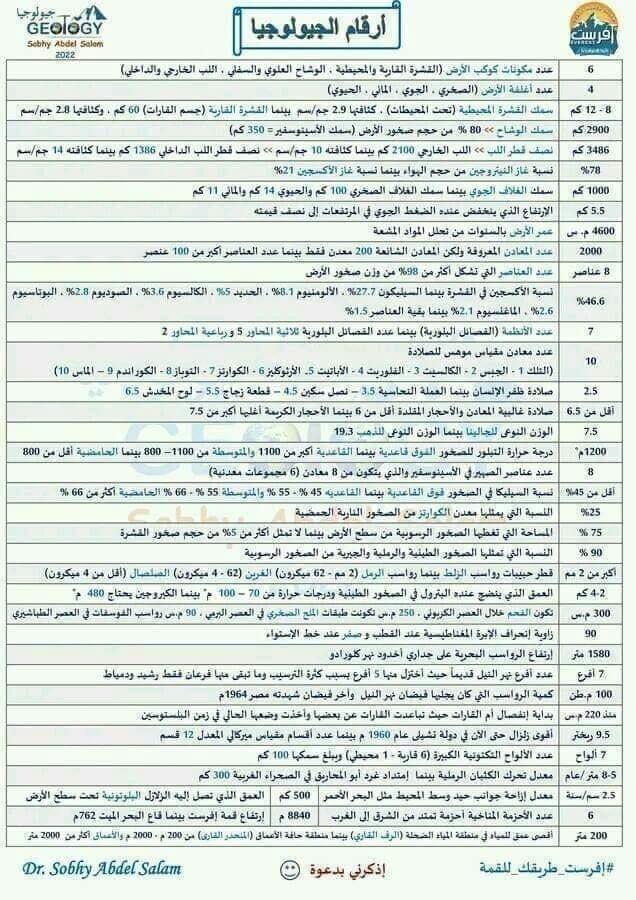 جيولوجيا
GEOLOGY
Sobhy Abdel Salam
2022
أرقام الجيولوجيا
إفرست
EVEREST
6 عدد مكونات كوكب الأرض (القشرة القارية والمحيطية ، الوشاح العلوي والسفلي ، اللب الخارجي والداخلي)
4 عدد أغلفة الأرض (الصخري ، الجوي ، المائي ، الحيوي)
8 - 12 كم سمك القشرة المحيطية (تحت المحيطات) ، كثافتها 2.9 جم/سم بينما القشرة القارية (جسم القارات) 60 كم ، وكثافتها 2.8 جم/سم
2900 كم سمك الوشاح >> 80 % من حجم صخور الأرض (سمك الأسينوسفير = 350 كم)
3486 كم نصف قطر اللب >> اللب الخارجي 2100 كم بينما كثافته 10 جم/سم >> نصف قطر اللب الداخلي 1386 كم بينما كثافته 14 جم/سم
78% نسبة غاز النيتروجين من حجم الهواء بينما نسبة غاز الأكسجين 21%
1000 كم سمك الغلاف الجوي بينما سمك الغلاف الصخري 100 كم والحيوي 14 كم والمائي 11 كم
5.5 كم الإرتفاع الذي ينخفض عنده الضغط الجوي في المرتفعات إلى نصف قيمته
4600 م.س عمر الأرض بالسنوات من تحلل المواد المشعة
2000 عدد المعادن المعروفة ولكن المعادن الشائعة 200 معدن فقط بينما عدد العناصر أكبر من 100 عنصر
8 عناصر عدد العناصر التي تشكل أكثر من 98% من وزن صخور الأرض
46.6% نسبة الأكسجين في القشرة بينما السيليكون 27.7% ، الألومنيوم 8.1% ، الحديد 5% ، الكالسيوم 3.6% ، الصوديوم 2.8% ، البوتاسيوم
2.6% ، الماغنلسيوم 2.1% بينما بقية العناصر 1.5%
7 عدد الأنظمة (الفصائل البلورية) بينما عدد الفصائل البلورية ثلاثية المحاور 5 و رباعية المحاور 2
10 عدد معادن مقياس موهس للصلادة
(التلك 1 - الجبس 2 - الكالسيت 3 - الفلوريت 4 - الأباتيت 5- الأرثوكليز 6 - الكوارتز 7 - التوباز 8 - الكوراندم 9 – الماس 10)
2.5 صلادة ظفر الإنسان بينما العملة النحاسية 3.5 – نصل سكين 4.5 – قطعة زجاج 5.5 – لوح المخدش 6.5
أقل من 6.5 صلادة غالبية المعادن والأحجار المقلدة أقل من 6 بينما الأحجار الكريمة أغلبها أكبر من 7.5
7.5 الوزن النوعى للجالينا بينما الوزن النوعى للذهب 19.3
1200م° درجة حرارة التبلور للصخور الفوق قاعدية بينما القاعدية أكبر من 1100 والمتوسطة من 1100– 800 بينما الحامضية أقل من 800
8 عدد عناصر الصهير في الأسينوسفير والذي يتكون من 8 معادن (6 مجموعات معدنية)
أقل من 45% نسبة السيليكا في الصخور فوق القاعدية بينما القاعديه 45 % - 55 % والمتوسطة 55 % - 66 % الحامضية أكثر من 66 %
25% النسبة التي يمثلها معدن الكوارتز من الصخور النارية الحمضية
75 % المساحة التي تغطيها الصخور الرسوبية من سطح الأرض بينما لا تمثل أكثر من 5% من حجم صخور القشرة
90 % النسبة التي تمثلها الصخور الطينية والرملية والجيرية من الصخور الرسوبية
أكبر من 2 مم قطر حبيبات رواسب الزلط بينما رواسب الرمل (2 مم - 62 ميكرون) الغرين (62 - 4 ميكرون) الصلصال (أقل من 4 ميكرون)
2-4 كم العمق الذي ينضج عنده البترول في الصخور الطينية ودرجات حرارة من 70 – 100 م° بينما الكيروجين يحتاج 480 م°
300 م.س تكون الفحم خلال العصر الكربوني ، 250 م.س تكونت طبقات الملح الصخري في العصر البرمى ، 90 م.س رواسب الفوسفات في العصر الطباشيري
90 زاوية إنحراف الإبرة المغناطيسية عند القطب و صفر عند خط الإستواء
1580 متر إرتفاع الرواسب البحرية على جداري أخدود نهر كلورادو
7 أفرع عدد أفرع نهر النيل قديماً حيث أختزل منها 5 أفرع بسبب كثرة الترسيب وما تبقى منها فرعان فقط رشيد ودمياط
100 م.طن كمية الرواسب التي كان يجلبها فيضان نهر النيل وأخر فيضان شهدته مصر 1964م
منذ 220 م.س بداية إنفصال أم القارات حيث تباعدت القارات عن بعضها وأخذت وضعها الحالي في زمن البلستوسين
9.5 ريختر أقوى زلزال حتى الأن في دولة تشيلى عام 1960 م بينما عدد أقسام مقياس ميركالي المعدل 12 قسم
7 ألواح عدد الألواح التكتونية الكبيرة (6 قارية - 1 محيطي) ويبلغ سمكها 100 كم
5-8 متر/عام معدل تحرك الكثبان الرملية بينما إمتداد غرد أبو المحاريق في الصحراء الغربية 300 كم
2.5 سم/سنة معدل إزاحة جوانب حيد وسط المحيط مثل البحر الأحمر 500 كم العمق الذي تصل إليه الزلازل البلوتونية تحت سطح الأرض
6 عدد الأحزمة المناخية أحزمة تمتد من الشرق إلى الغرب 8840 م إرتفاع قمة إفرست بينما قاع البحر الميت 762م
200 متر أقصى عمق للمياه في منطقة المياه الضحلة (الرف القاري) بينما منطقة حافة الأعماق (المنحدر القارى) من 200 م - 2000 م والأعماق أكثر من 2000 متر
#إفرست_طريقك_للقمة
إذكرني بدعوة
Dr. Sobhy Abdel Salam